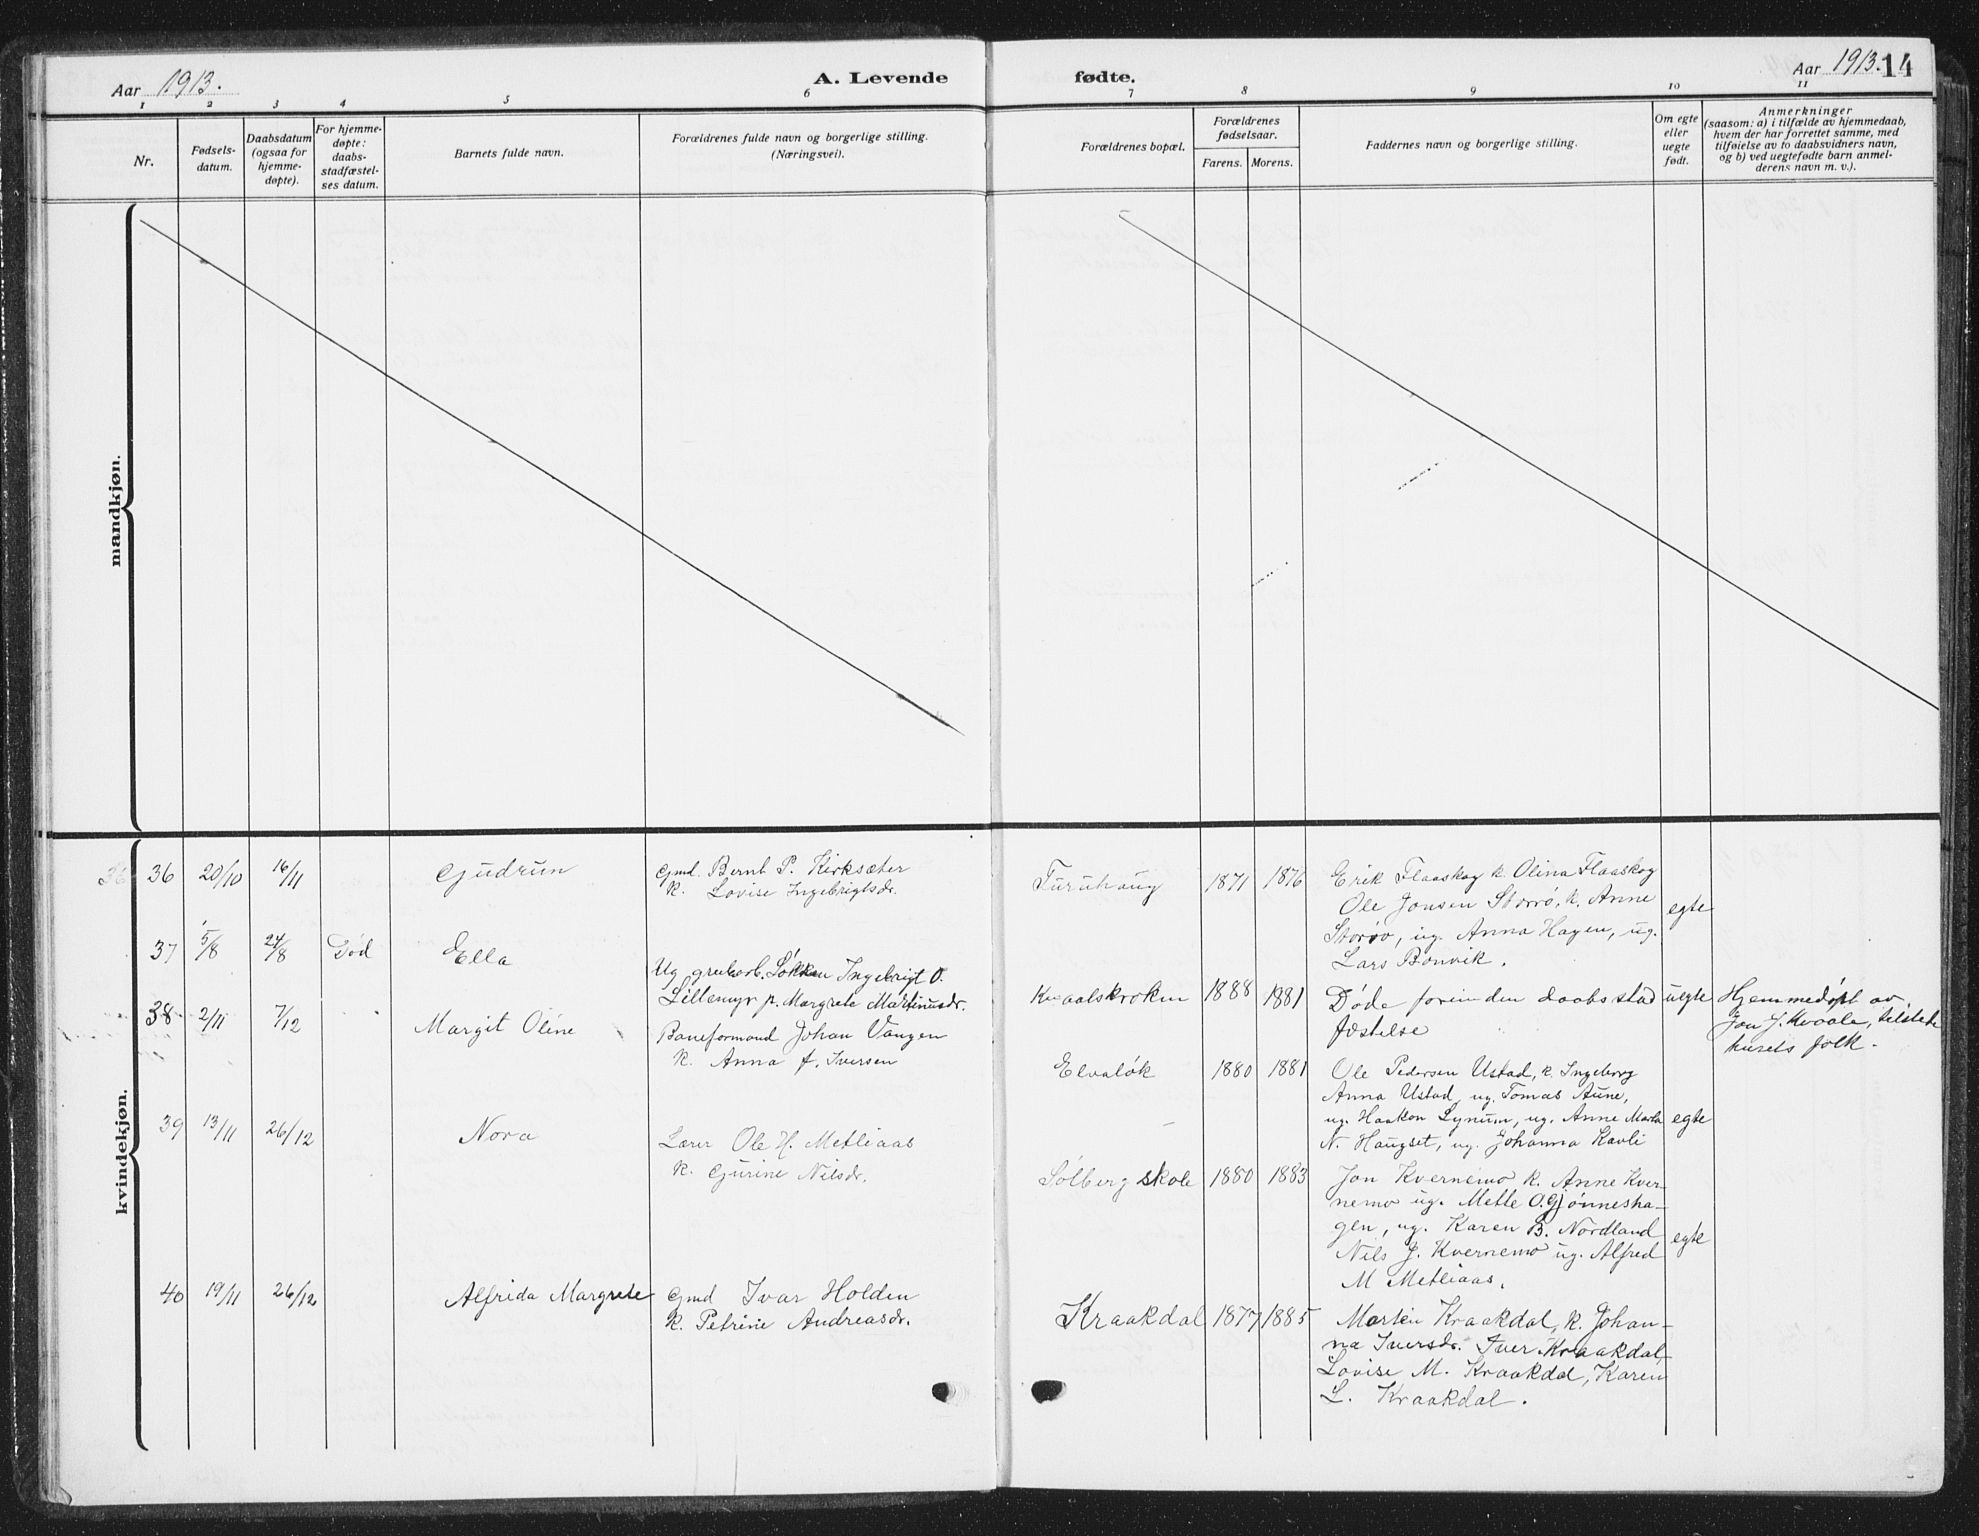 Aar 1913.
A. Levende fødte.
Aar 1913. 14
1 2 3 4 5 6 7 8 9 10 11
Nr.
Fødsels-
datum.
Daabsdatum
(ogsaa for
hjemme-
døpte).
For hjemme-
døpte:
daabs-
stadfæstel-
ses datum.
Barnets fulde navn.
Forældrenes fulde navn og borgerlige stilling.
(Næringsvei).
Forældrenes bopæl.
Forældrenes
fødselsaar.
Farens. Morens.
Faddernes navn og borgerlige stilling.
Om egte
eller
uegte
født.
Anmerkninger
(saasom: a) i tilfælde av hjemmedaab,
hvem der har forrettet samme, med
tilføielse av to daabsvidners navn,
og b) ved uegtefødte barn anmel-
derens navn m. v.).
mandkjøn.
kvindekjøn.
36 20/10 16/11 Gudrun
Gmd. Bernt P. Kirksæter
k. Lovise Ingebrigtsdr.
Furuhaug 1871 1876
Erik Flaaskog k. Olina Flaaskog
Ole Jonsen Storrø, k. Anne
Storøo, ug. Anna Hagen, ug.
Lars Bonvik.
egte
37 5/8 24/8 Død Ella
Ug grubearb. Løkken Ingebrigt O.
Lillemyr p. Margrete Martinusdr.
Kvaalskroken 1888 1881
Døde forinden daabsstad
fæstelse
uegte
Hjemmedøpt av
Jon J. Kvaale, tilstede
husets folk.
38 2/11 7/12 Margit Oline
Baneformand Johan Vangen
k. Anna f. Iversen
Elvaløk 1880 1881
Ole Pedersen Ustad, k. Ingeborg
Anna Ustad, ug. Tomas Aune,
ug. Haakon Lynum, ug. Anne Marta
N. Haugset, ug. Johanna Kavli
egte
39 13/11 26/12 Nora
Lærer Ole H. Metliaas
k. Gurine Nilsdr.
Solberg skole 1880 1883
Jon Kvernemo k. Anne Kver-
nemo ug. Mette O. Gjønnesha-
gen, ug. Karen B. Nordland
Nils J. Kvernemo ug. Alfred
M Metliaas.
egte
40 19/11 26/12 Alfrida Margrete
Gmd Ivar Holden
k. Petrine Andreasdr.
Kraakdal 1877 1885
Morten Kraakdal, k. Johan-
na Iversdr. Iver Kraakdal,
Lovise M. Kraakdal, Karen
L. Kraakdal.